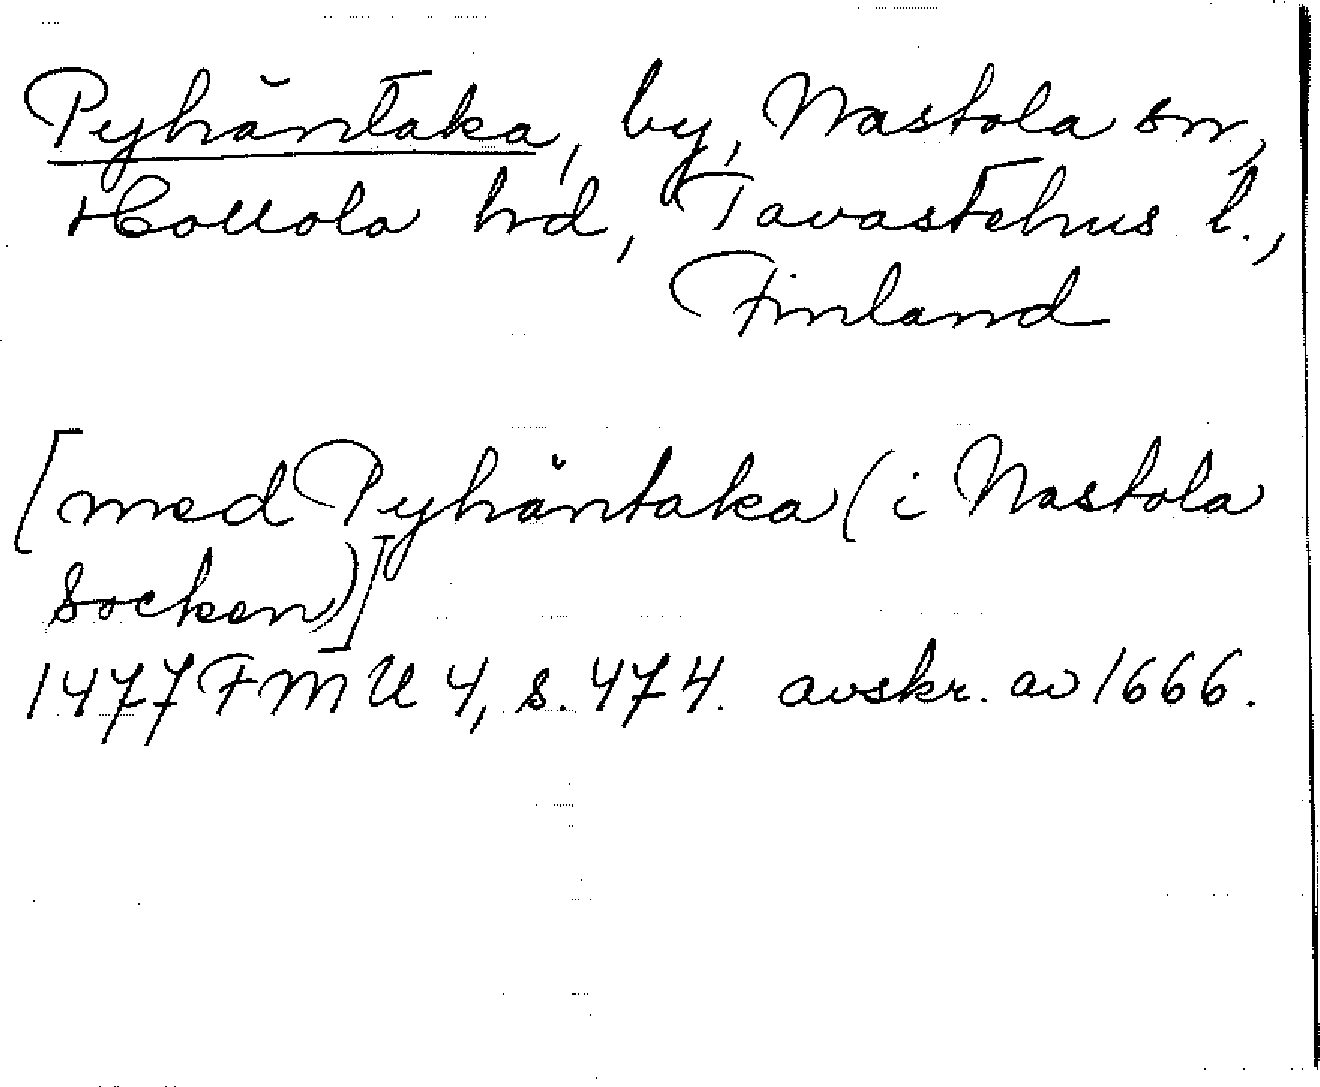 Pyhäntaka, by, Nastola sn,
Hollola hd, Tavastehus l.,
Finland
[med Pyhäntaka (i Nastola
Socken)]
1477 FMU 4, s. 474. avskr. av 1666.